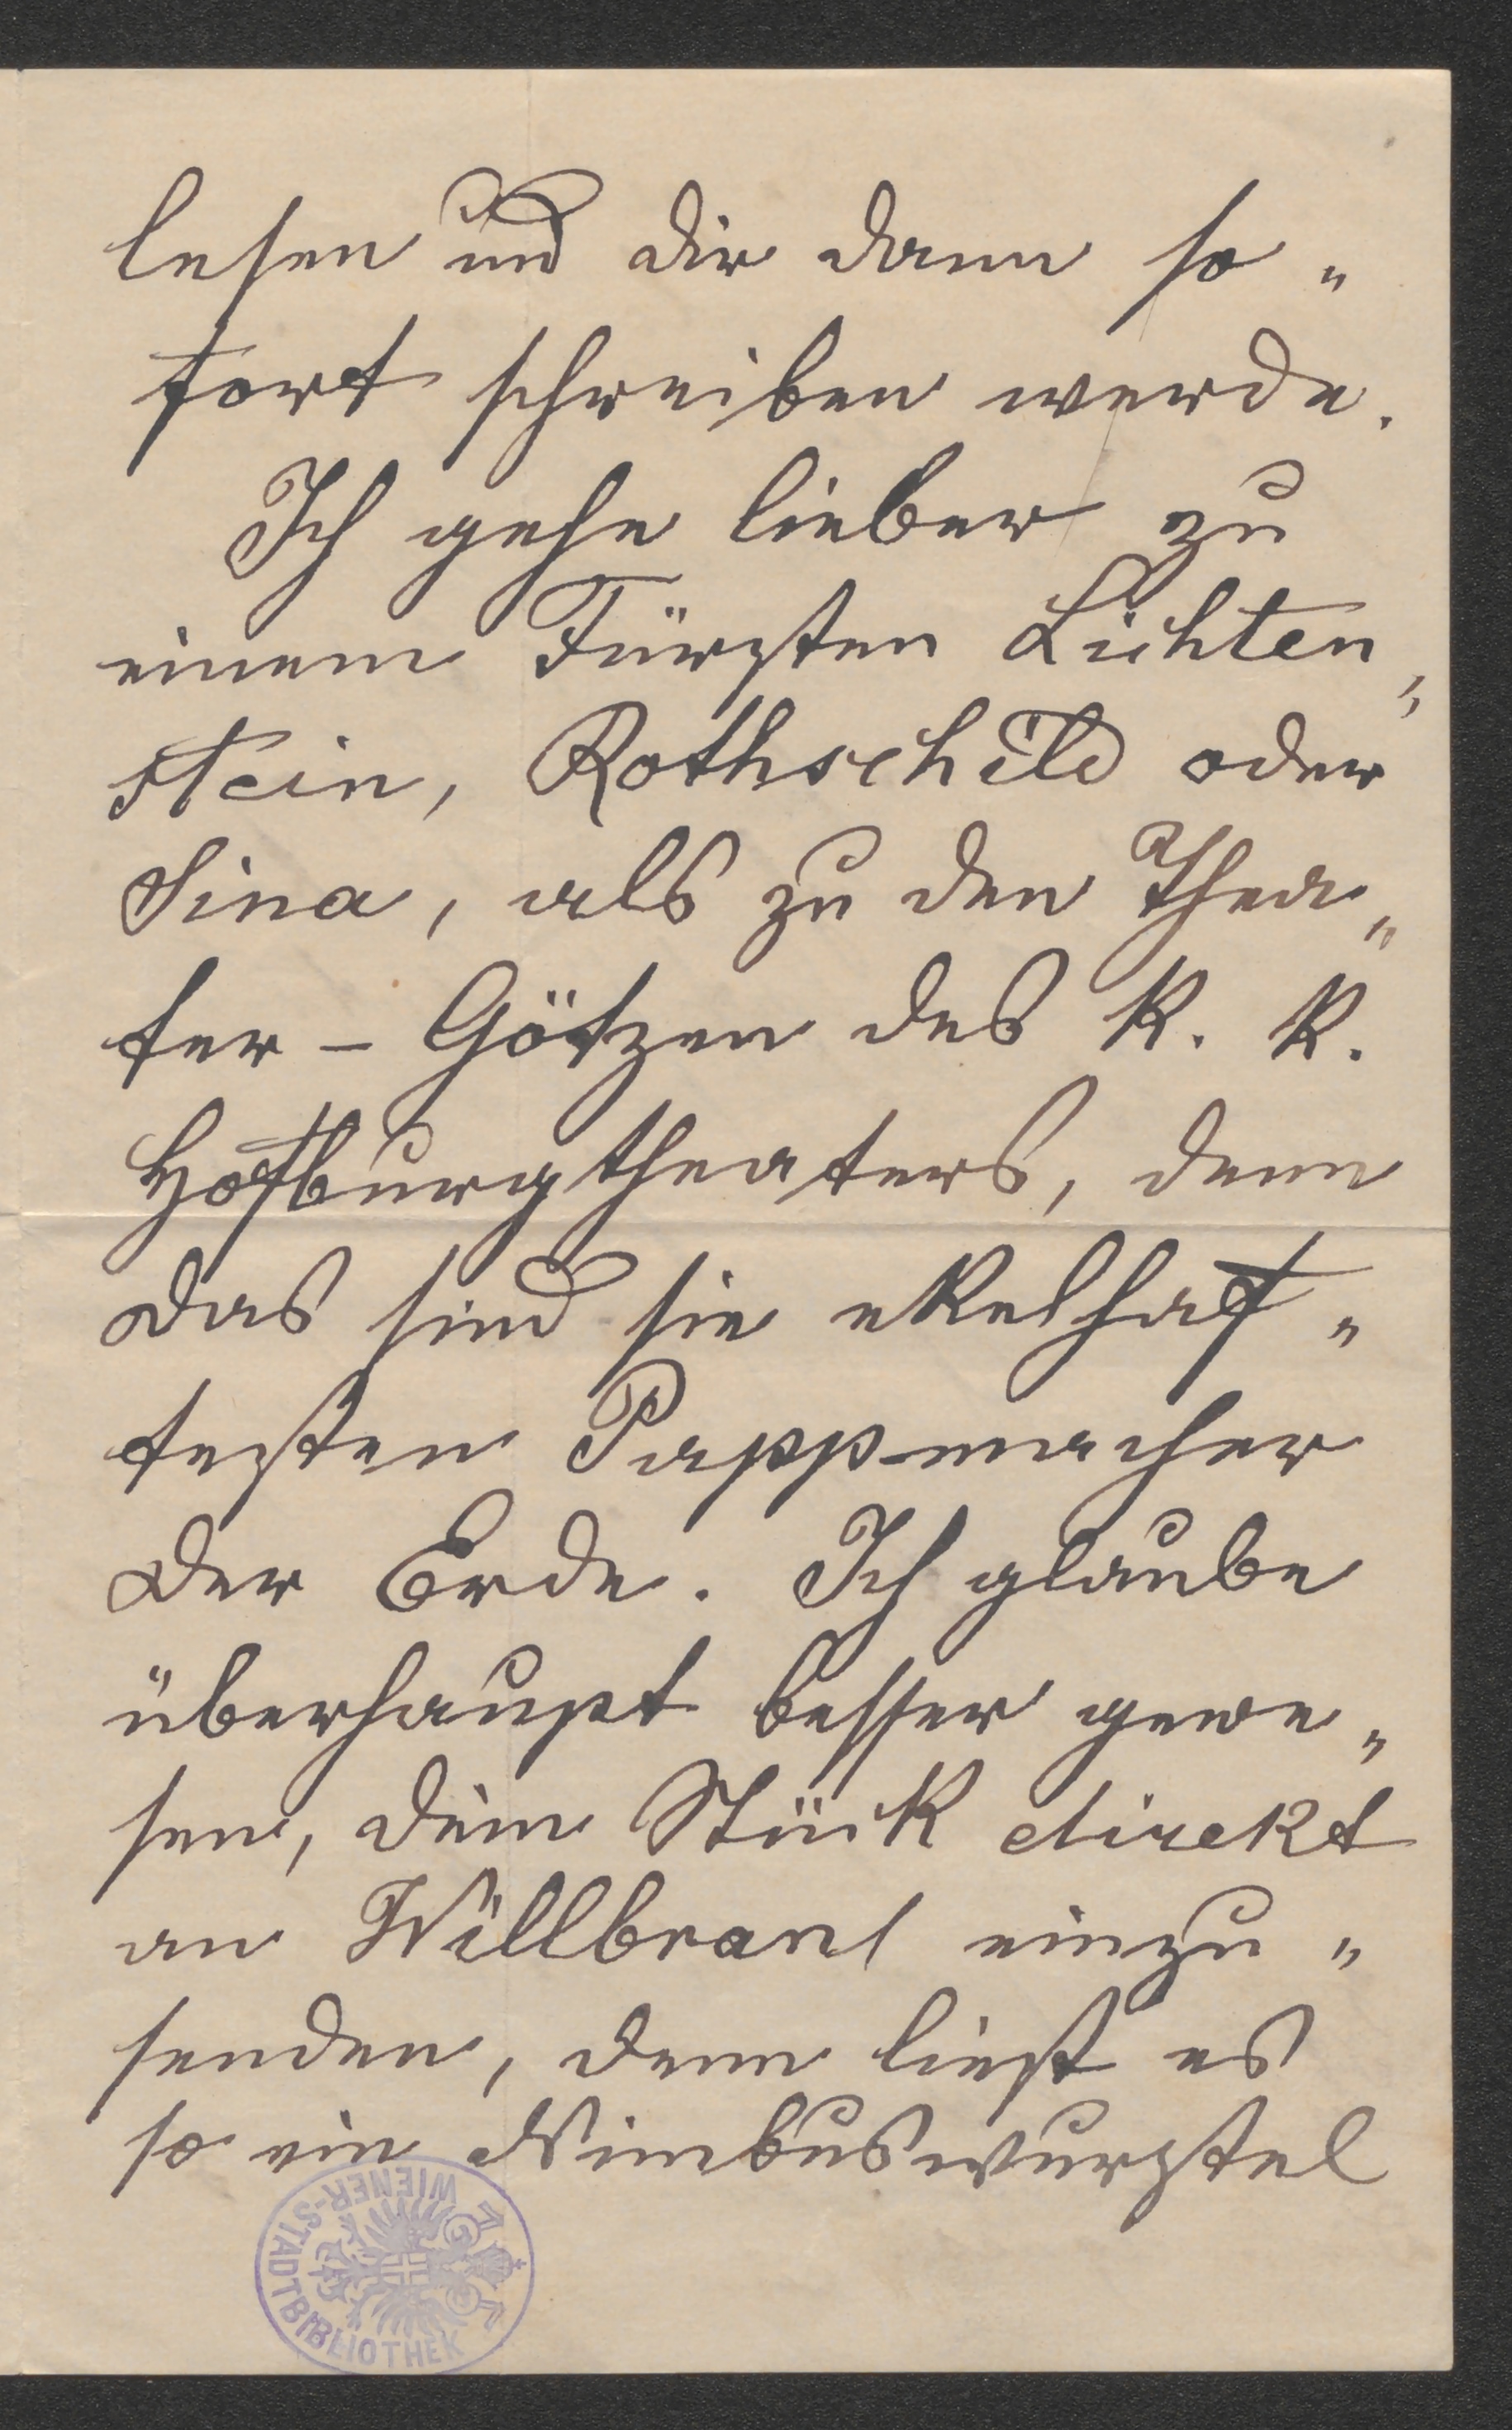 lesen und dir dann so„
fort schreiben werde.
Ich gehe lieber zu
einem Fürsten Lichten„
stein, Rothschild oder
Sina, als zu den Thea„
ter-Götzen des K. K.
Hofburgtheaters, denn
das sind sie ekelhaf„
testen Pappmacher
der Erde. Ich glaube
überhaupt besser gewe„
sen, dein Stück direkt
an Willbrant einzu„
senden, denn liest es
so ein Nimbuswurstel
WIENER-STADTBIBLIOTHEK